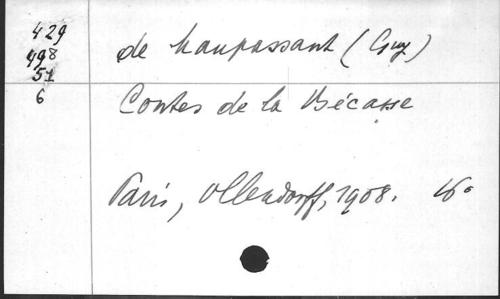 429
498
51
6
de Maupassant (Guy)
Contes de la Bécasse
Paris, Ollendorff, 1908. 16°